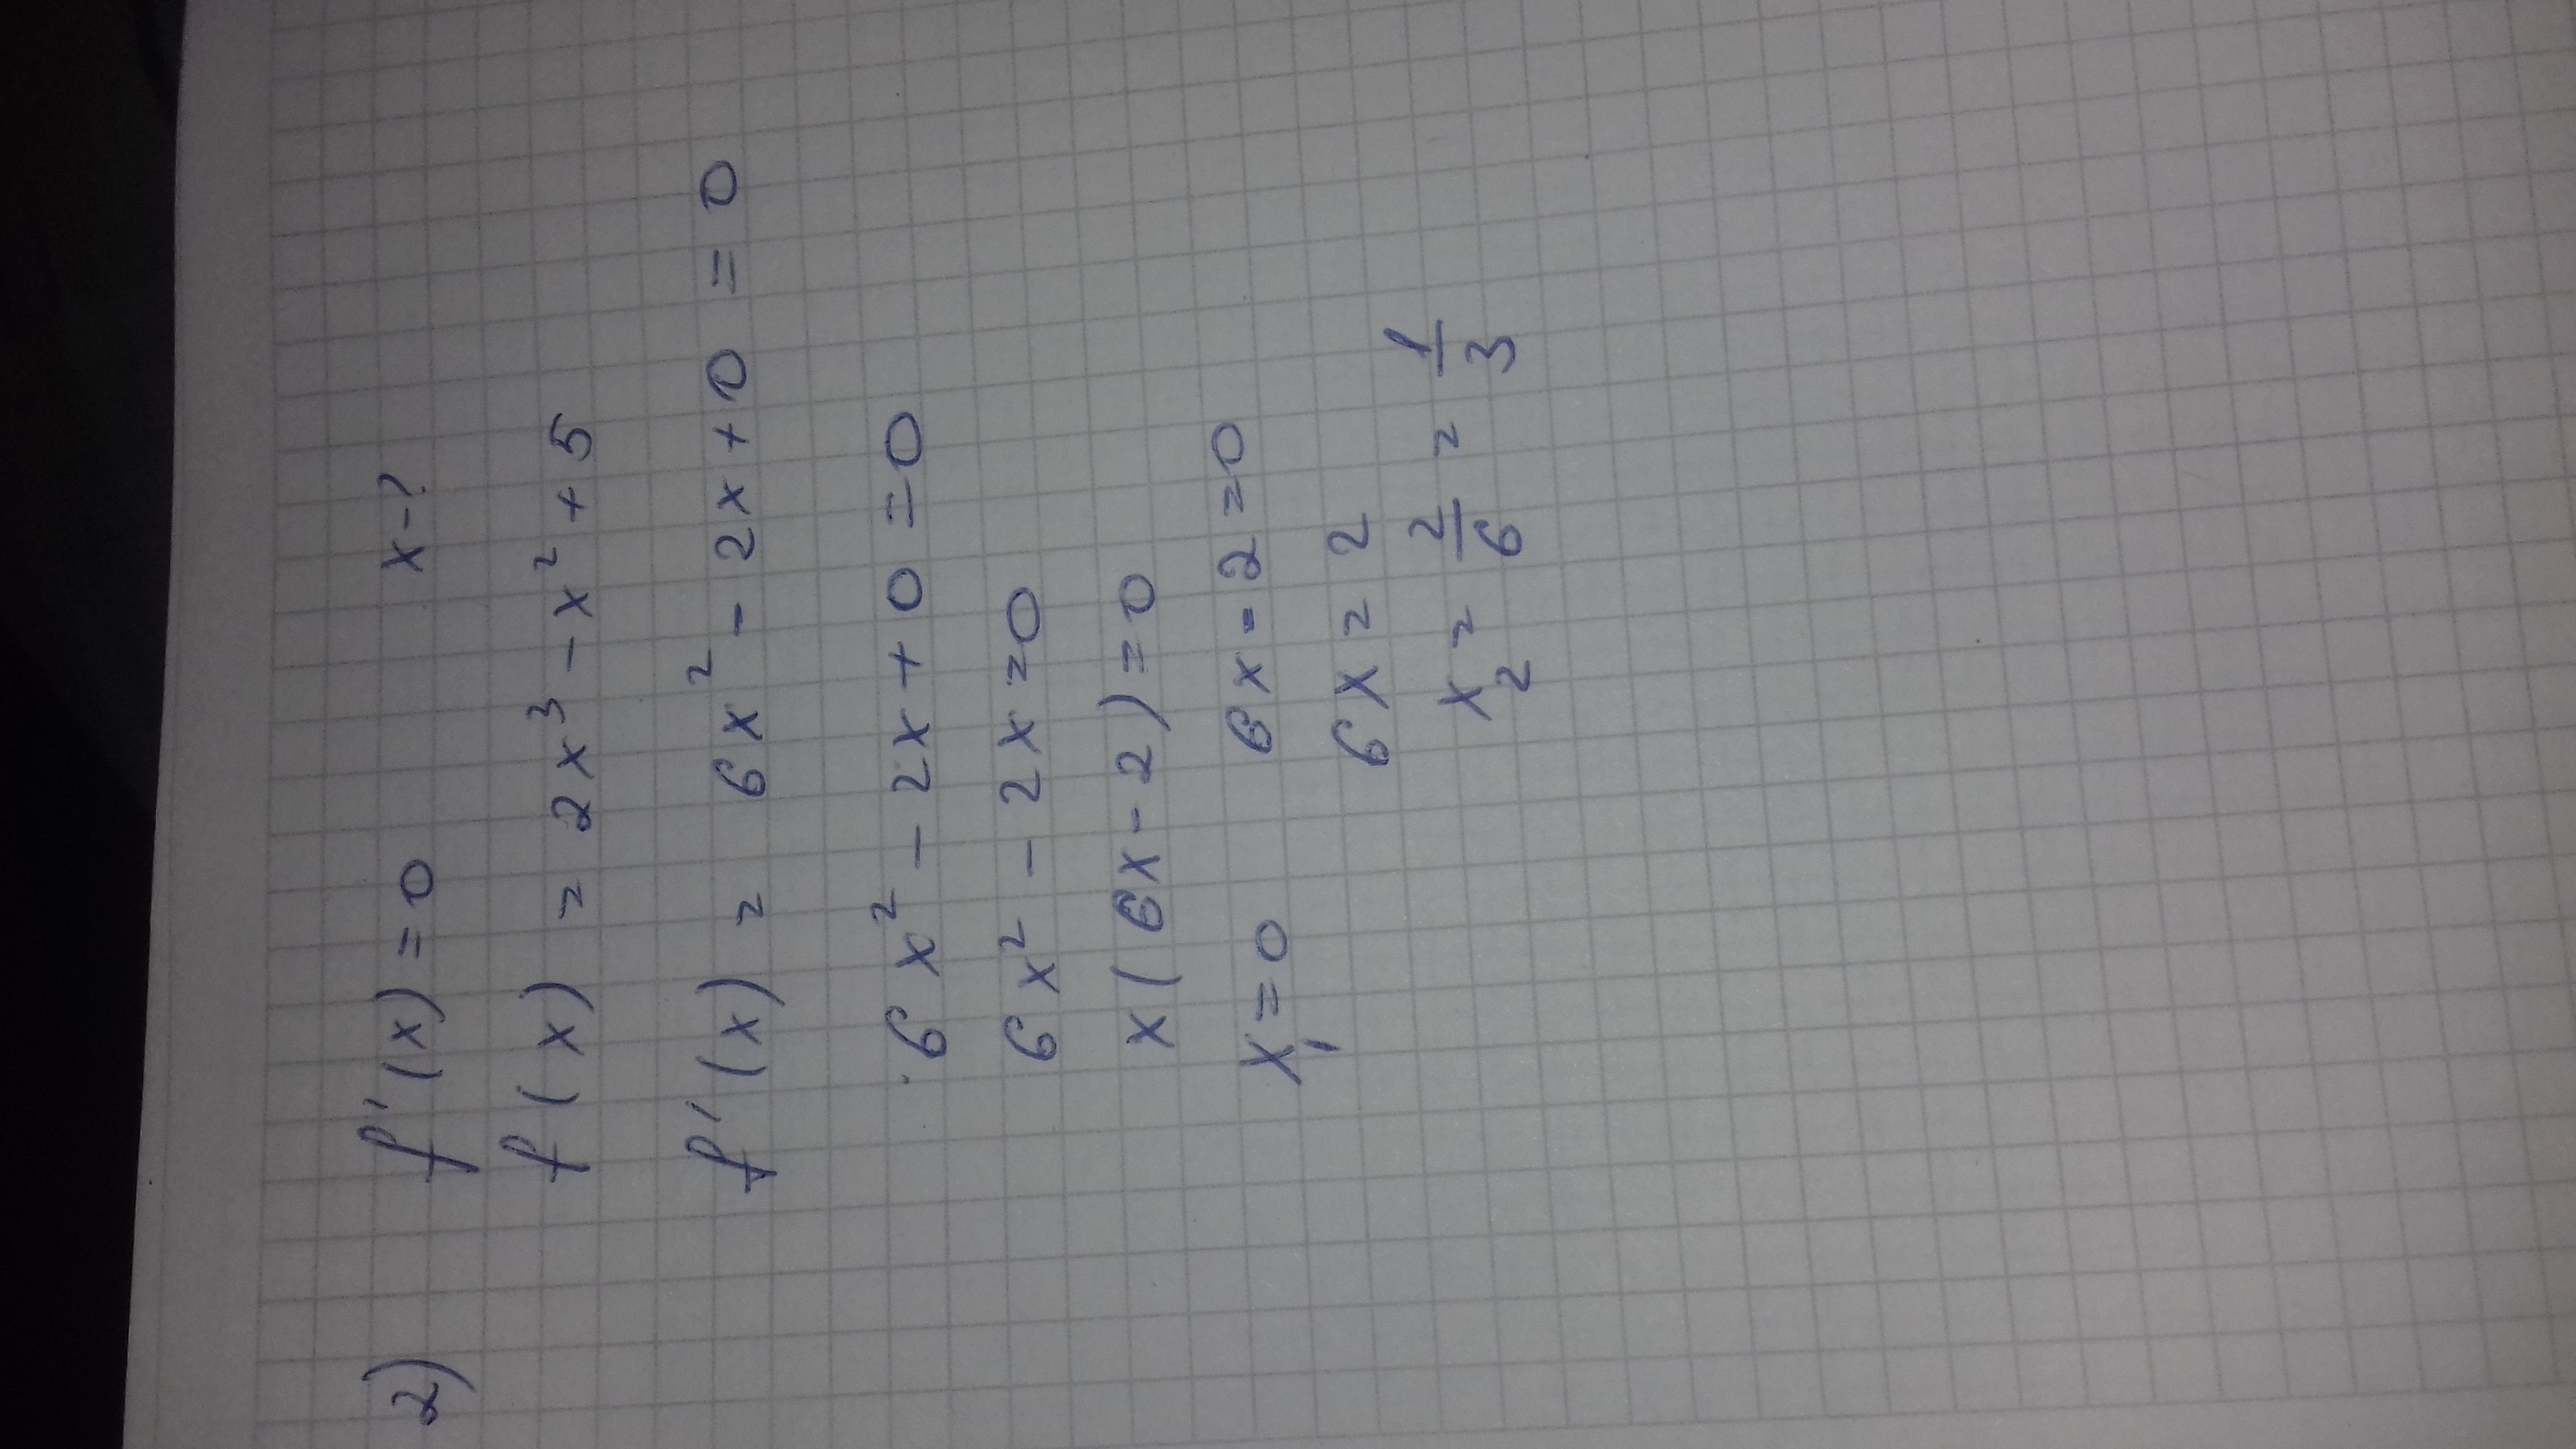 2) f'(x) = 0 x - ?
f(x) = 2x³ - x² + 5
f'(x) = 6x² - 2x + 0 = 0
6x² - 2x + 0 = 0
6x² - 2x = 0
x(6x - 2) = 0
x₁ = 0 6x - 2 = 0
6x = 2
x₂ = 2/6 = 1/3